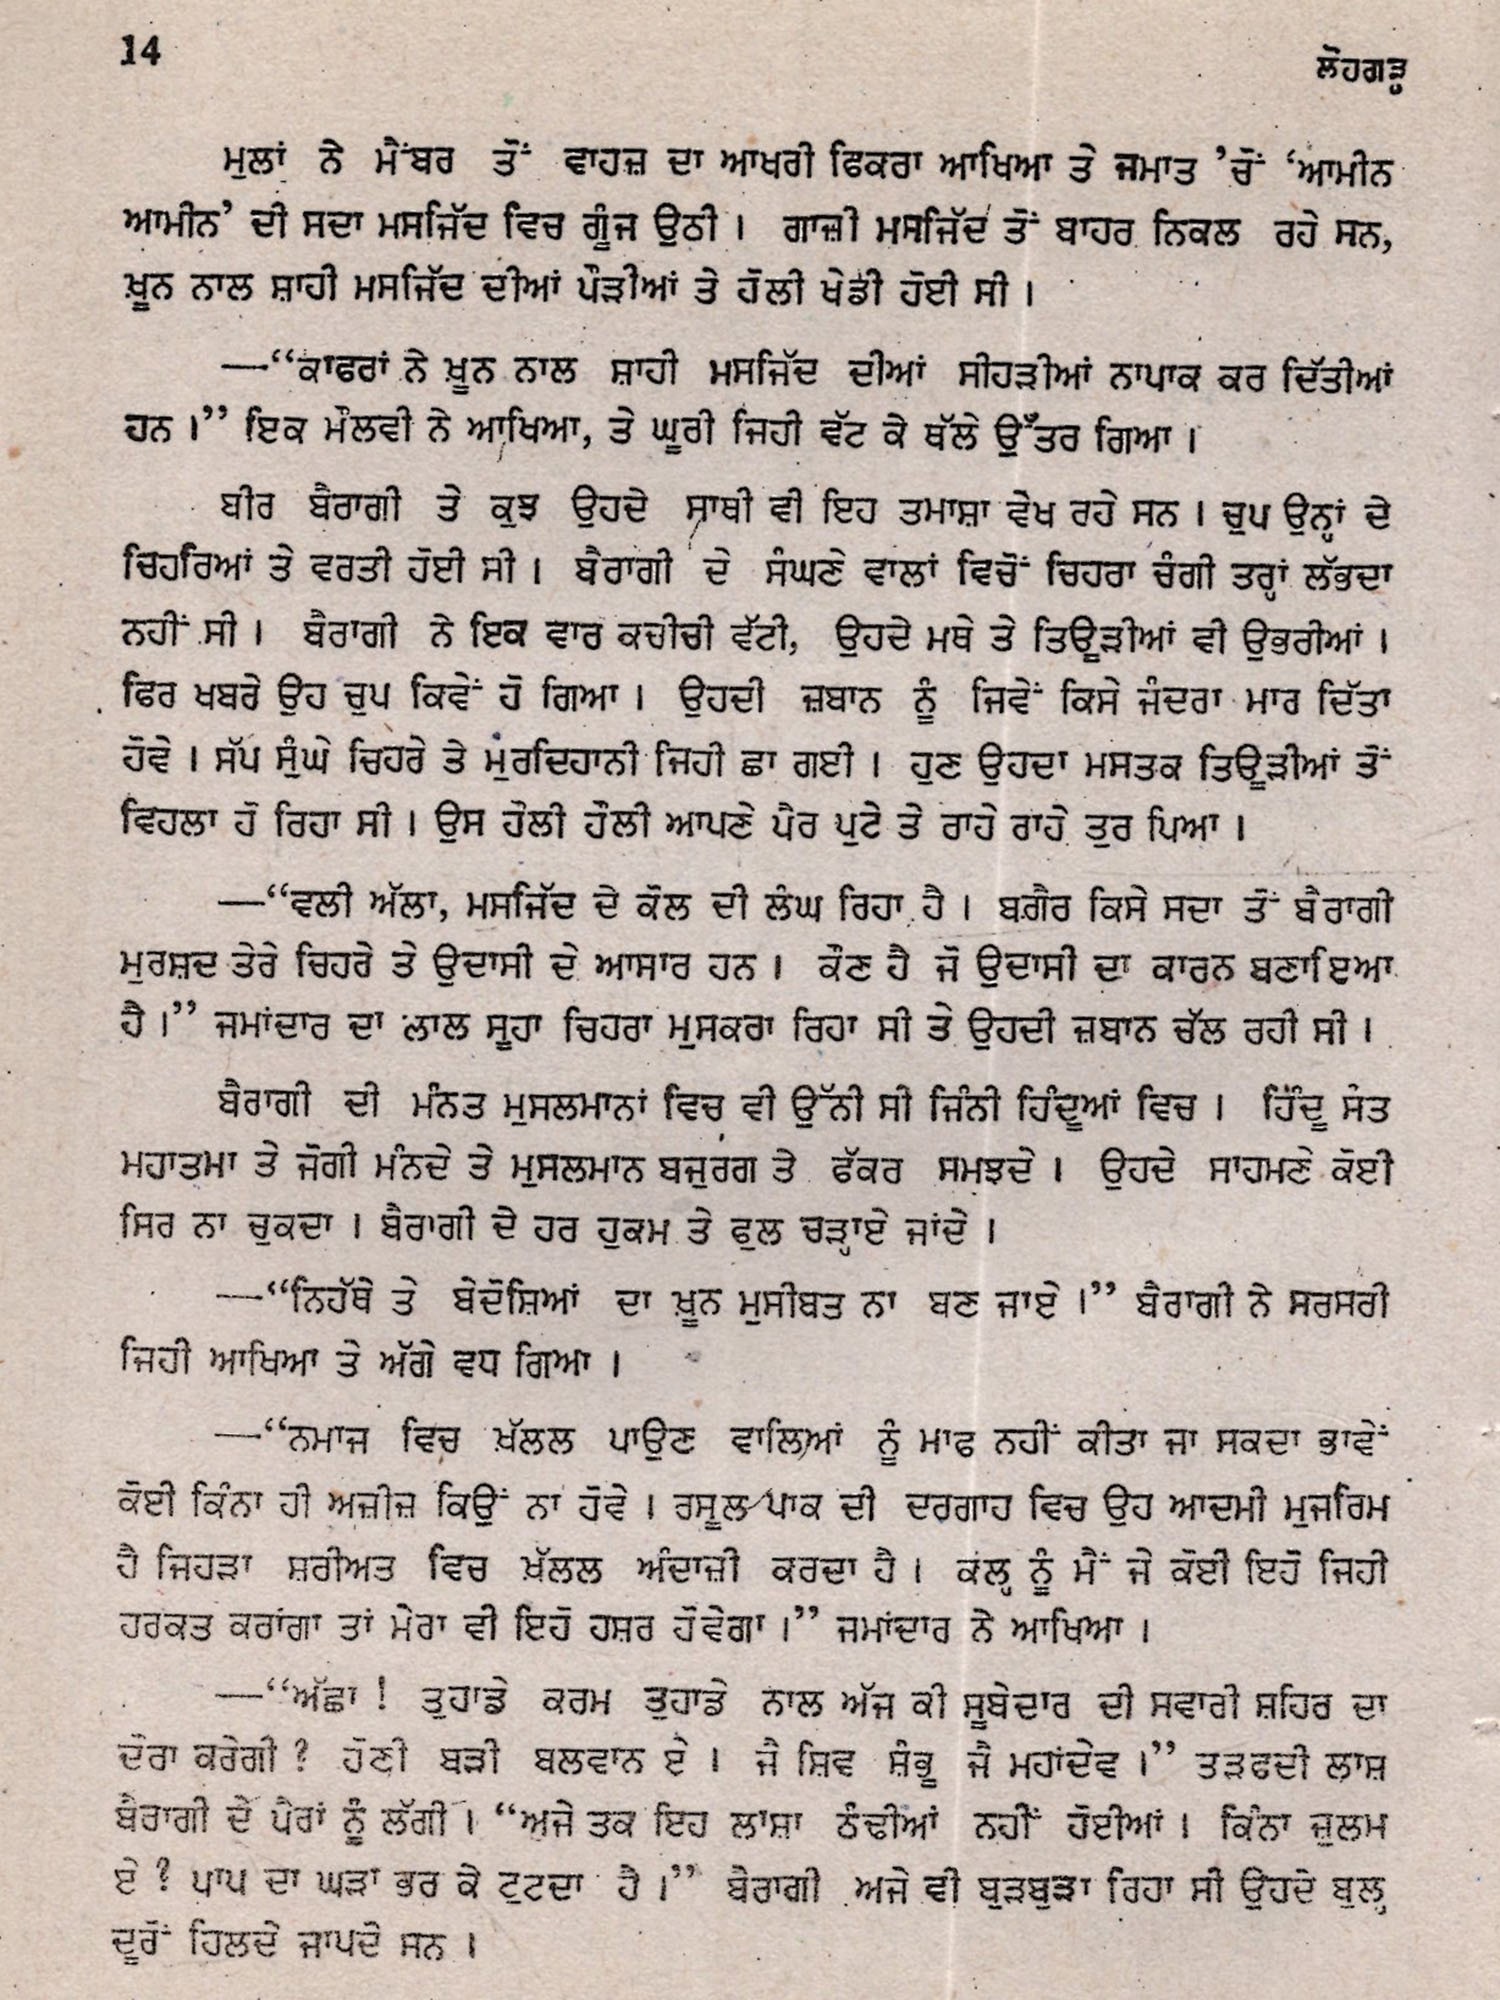 14
ਲੋਹਗੜ੍ਹ
ਮੁਲਾਂ ਨੇ ਮੈਂਬਰ ਤੋਂ ਵਾਹਜ਼ ਦਾ ਆਖਰੀ ਫਿਕਰਾ ਆਖਿਆ ਤੇ ਜਮਾਤ ’ਚੋਂ ‘ਆਮੀਨ
ਆਮੀਨ’ ਦੀ ਸਦਾ ਮਸਜਿੱਦ ਵਿਚ ਗੂੰਜ ਉਠੀ । ਗਾਜ਼ੀ ਮਸਜਿੱਦ ਤੋਂ ਬਾਹਰ ਨਿਕਲ ਰਹੇ ਸਨ,
ਖ਼ੂਨ ਨਾਲ ਸ਼ਾਹੀ ਮਸਜਿੱਦ ਦੀਆਂ ਪੌੜੀਆਂ ਤੇ ਹੋਲੀ ਖੇਡੀ ਹੋਈ ਸੀ ।
—“ਕਾਫਰਾਂ ਨੇ ਖ਼ੂਨ ਨਾਲ ਸ਼ਾਹੀ ਮਸਜਿੱਦ ਦੀਆਂ ਸੀਹੜੀਆਂ ਨਾਪਾਕ ਕਰ ਦਿੱਤੀਆਂ
ਹਨ ।” ਇਕ ਮੌਲਵੀ ਨੇ ਆਖਿਆ, ਤੇ ਘੂਰੀ ਜਿਹੀ ਵੱਟ ਕੇ ਥੱਲੇ ਉੱਤਰ ਗਿਆ ।
ਬੀਰ ਬੈਰਾਗੀ ਤੇ ਕੁਝ ਉਹਦੇ ਸਾਥੀ ਵੀ ਇਹ ਤਮਾਸ਼ਾ ਵੇਖ ਰਹੇ ਸਨ । ਚੁਪ ਉਨ੍ਹਾਂ ਦੇ
ਚਿਹਰਿਆਂ ਤੇ ਵਰਤੀ ਹੋਈ ਸੀ । ਬੈਰਾਗੀ ਦੇ ਸੰਘਣੇ ਵਾਲਾਂ ਵਿਚੋਂ ਚਿਹਰਾ ਚੰਗੀ ਤਰ੍ਹਾਂ ਲੱਭਦਾ
ਨਹੀਂ ਸੀ । ਬੈਰਾਗੀ ਨੇ ਇਕ ਵਾਰ ਕਚੀਚੀ ਵੱਟੀ, ਉਹਦੇ ਮਥੇ ਤੇ ਤਿਊੜੀਆਂ ਵੀ ਉਭਰੀਆਂ ।
ਫਿਰ ਖਬਰੇ ਉਹ ਚੁਪ ਕਿਵੇਂ ਹੋ ਗਿਆ । ਉਹਦੀ ਜ਼ਬਾਨ ਨੂੰ ਜਿਵੇਂ ਕਿਸੇ ਜੰਦਰਾ ਮਾਰ ਦਿੱਤਾ
ਹੋਵੇ । ਸੱਪ ਸੁੰਘੇ ਚਿਹਰੇ ਤੇ ਮੁਰਦਿਹਾਨੀ ਜਿਹੀ ਛਾ ਗਈ । ਹੁਣ ਉਹਦਾ ਮਸਤਕ ਤਿਊੜੀਆਂ ਤੋਂ
ਵਿਹਲਾ ਹੋ ਰਿਹਾ ਸੀ । ਉਸ ਹੌਲੀ ਹੌਲੀ ਆਪਣੇ ਪੈਰ ਪੁਟੇ ਤੇ ਰਾਹੇ ਰਾਹੇ ਤੁਰ ਪਿਆ ।
—“ਵਲੀ ਅੱਲਾ, ਮਸਜਿੱਦ ਦੇ ਕੋਲ ਦੀ ਲੰਘ ਰਿਹਾ ਹੈ । ਬਗ਼ੈਰ ਕਿਸੇ ਸਦਾ ਤੋਂ ਬੈਰਾਗੀ
ਮੁਰਸ਼ਦ ਤੇਰੇ ਚਿਹਰੇ ਤੇ ਉਦਾਸੀ ਦੇ ਆਸਾਰ ਹਨ । ਕੌਣ ਹੈ ਜੋ ਉਦਾਸੀ ਦਾ ਕਾਰਨ ਬਣਾਇਆ
ਹੈ ।” ਜਮਾਂਦਾਰ ਦਾ ਲਾਲ ਸੂਹਾ ਚਿਹਰਾ ਮੁਸਕਰਾ ਰਿਹਾ ਸੀ ਤੇ ਉਹਦੀ ਜ਼ਬਾਨ ਚੱਲ ਰਹੀ ਸੀ ।
ਬੈਰਾਗੀ ਦੀ ਮੰਨਤ ਮੁਸਲਮਾਨਾਂ ਵਿਚ ਵੀ ਉੱਨੀ ਸੀ ਜਿੰਨੀ ਹਿੰਦੂਆਂ ਵਿਚ । ਹਿੰਦੂ ਸੰਤ
ਮਹਾਤਮਾ ਤੇ ਜੋਗੀ ਮੰਨਦੇ ਤੇ ਮੁਸਲਮਾਨ ਬਜੁਰਗ ਤੇ ਫੱਕਰ ਸਮਝਦੇ । ਉਹਦੇ ਸਾਹਮਣੇ ਕੋਈ
ਸਿਰ ਨਾ ਚੁਕਦਾ । ਬੈਰਾਗੀ ਦੇ ਹਰ ਹੁਕਮ ਤੇ ਫੁਲ ਚੜ੍ਹਾਏ ਜਾਂਦੇ ।
—“ਨਿਹੱਥੇ ਤੇ ਬੇਦੋਸ਼ਿਆਂ ਦਾ ਖ਼ੂਨ ਮੁਸੀਬਤ ਨਾ ਬਣ ਜਾਏ ।” ਬੈਰਾਗੀ ਨੇ ਸਰਸਰੀ
ਜਿਹੀ ਆਖਿਆ ਤੇ ਅੱਗੇ ਵਧ ਗਿਆ ।
—“ਨਮਾਜ ਵਿਚ ਖ਼ੱਲਲ ਪਾਉਣ ਵਾਲਿਆਂ ਨੂੰ ਮਾਫ ਨਹੀਂ ਕੀਤਾ ਜਾ ਸਕਦਾ ਭਾਵੇਂ
ਕੋਈ ਕਿੰਨਾ ਹੀ ਅਜ਼ੀਜ਼ ਕਿਉਂ ਨਾ ਹੋਵੇ । ਰਸੂਲ ਪਾਕ ਦੀ ਦਰਗਾਹ ਵਿਚ ਉਹ ਆਦਮੀ ਮੁਜਰਿਮ
ਹੈ ਜਿਹੜਾ ਸ਼ਰੀਅਤ ਵਿਚ ਖ਼ੱਲਲ ਅੰਦਾਜ਼ੀ ਕਰਦਾ ਹੈ । ਕਲ੍ਹ ਨੂੰ ਮੈਂ ਜੇ ਕੋਈ ਇਹੋ ਜਿਹੀ
ਹਰਕਤ ਕਰਾਂਗਾ ਤਾਂ ਮੇਰਾ ਵੀ ਇਹੋ ਹਸ਼ਰ ਹੋਵੇਗਾ ।” ਜਮਾਂਦਾਰ ਨੇ ਆਖਿਆ ।
—“ਅੱਛਾ ! ਤੁਹਾਡੇ ਕਰਮ ਤੁਹਾਡੇ ਨਾਲ ਅੱਜ ਕੀ ਸੂਬੇਦਾਰ ਦੀ ਸਵਾਰੀ ਸ਼ਹਿਰ ਦਾ
ਦੌਰਾ ਕਰੇਗੀ ? ਹੋਣੀ ਬੜੀ ਬਲਵਾਨ ਏ । ਜੈ ਸ਼ਿਵ ਸ਼ੰਭੂ ਜੈ ਮਹਾਂਦੇਵ ।” ਤੜਫਦੀ ਲਾਸ਼
ਬੈਰਾਗੀ ਦੇ ਪੈਰਾਂ ਨੂੰ ਲੱਗੀ । “ਅਜੇ ਤਕ ਇਹ ਲਾਸ਼ਾ ਠੰਢੀਆਂ ਨਹੀਂ ਹੋਈਆਂ । ਕਿੰਨਾ ਜ਼ੁਲਮ
ਏ ? ਪਾਪ ਦਾ ਘੜਾ ਭਰ ਕੇ ਟੁਟਦਾ ਹੈ ।” ਬੈਰਾਗੀ ਅਜੇ ਵੀ ਬੁੜਬੁੜਾ ਰਿਹਾ ਸੀ ਉਹਦੇ ਬੁਲ੍ਹ
ਦੂਰੋਂ ਹਿਲਦੇ ਜਾਪਦੇ ਸਨ ।